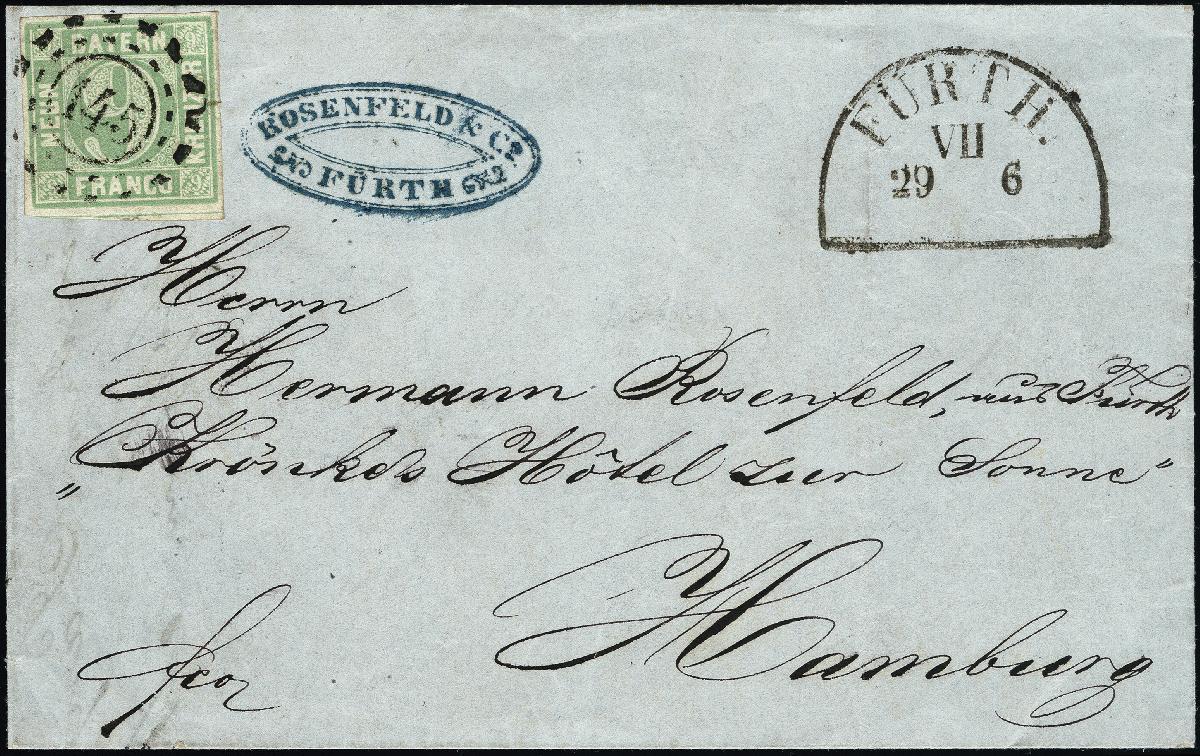 BAYERN
NEUN
KREUZER
FRANCO
9
145
ROSENFELD & Cᵒ.
FÜRTH
FÜRTH.
VII
29 6
Herrn
Hermann Rosenfeld, aus Fürth
„Krönke's Hôtel zur Sonne“
Hamburg
fco